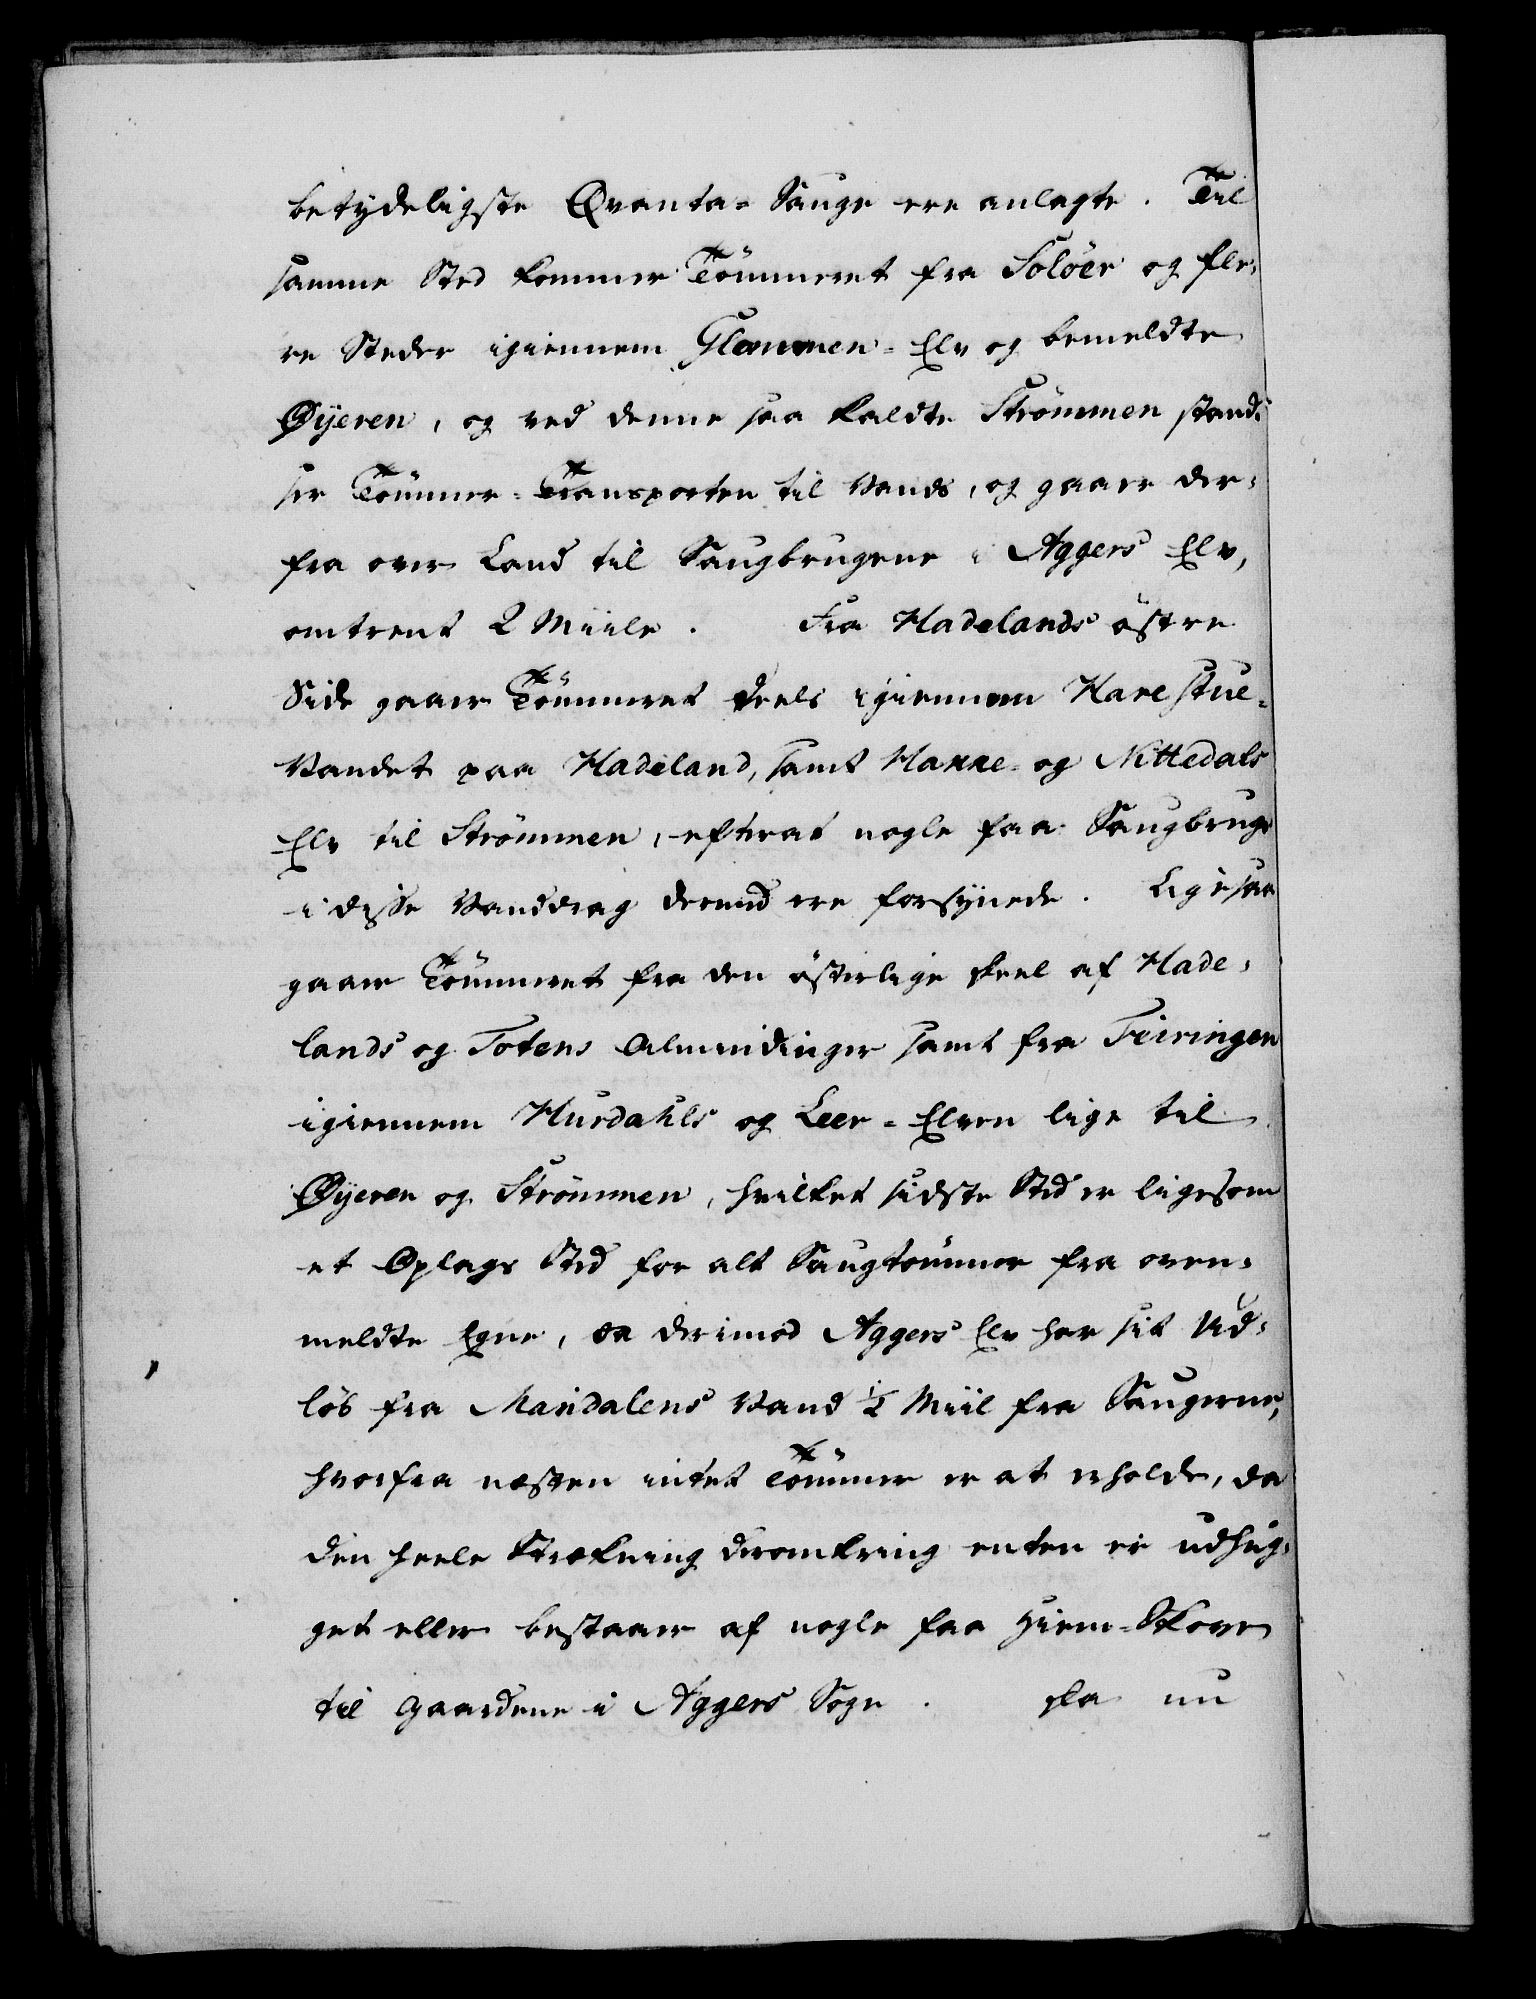 betydeligste Qvanta-Sauge ere anlagte. Til
samme Sted kommer Tömmeret fra Solöer og fle-
re Steder igiennem Glommen-Elv og bemeldte
Øyeren, og ved denne saa kaldte Strömmen stand-
ser Tömmer-Transporten til Vands, og gaaer der-
fra over Land til Saugbrugene i Aggers Elv,
omtrent 2 Miile. Fra Hadelands östre
Side gaaer Tömmeret deels igiennem Harestue-
Vandet paa Hadeland, samt Hakke- og Nittedals
Elv til Strömmen, efterat nogle faa Saugbruge
i disse Vanddrag dermed ere forsÿnede. Ligesaa
gaaer Tömmeret fra den österlige Deel af Hade-
lands og Totens Almindinger samt fra Feiringen
igiennem Hurdahls og Leer-Elven lige til
Øyeren og Strömmen, hvilket sidste Sted er ligesom
et Oplags Sted for alt Saugtömmer fra oven-
meldte Egne, da derimod Aggers Elv har sit Ud-
löb fra Maridalens Vand 1/2 Miil fra Saugerne,
hvorfra næsten intet Tömmer er at erholde, da
den heele Strækning deromkring enten er udhug-
get eller bestaaer af nogle faa Hiem-Skove
til Gaardene i Aggers Sogn. Fra nu